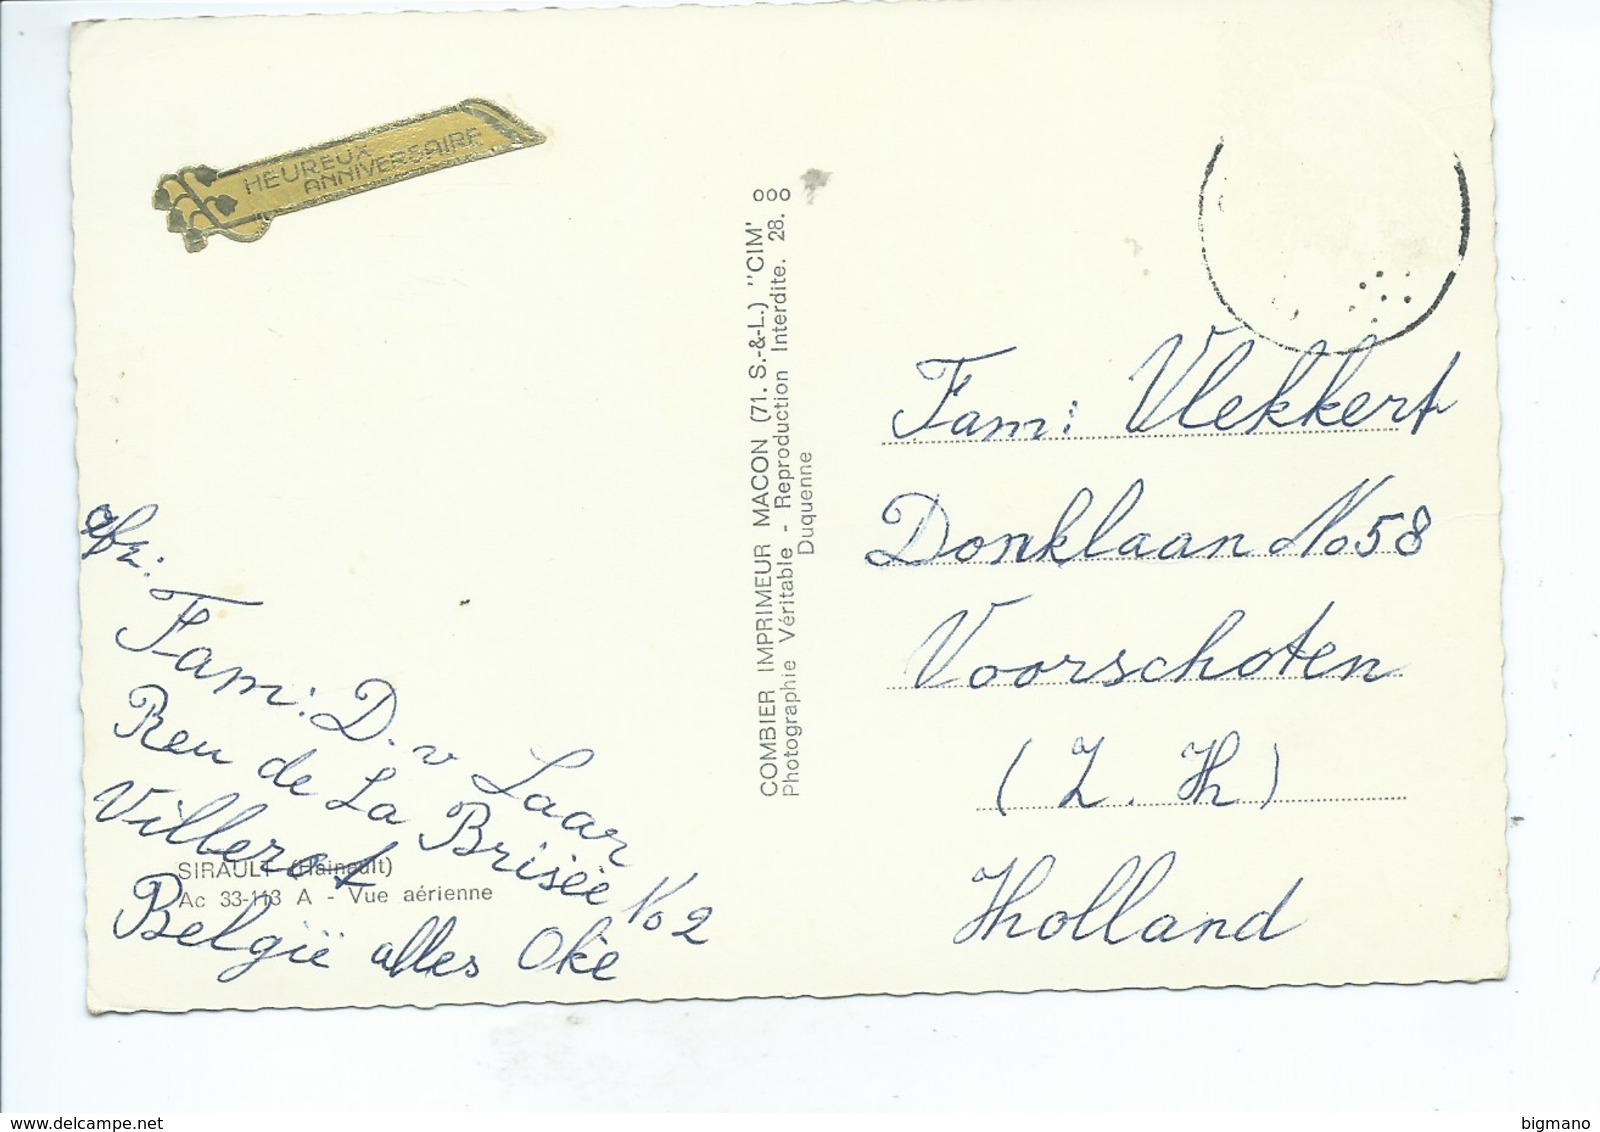 HEUREUX
ANNIVERSAIRE
afz:
Fam: D. v Laar
Reu de La Brisëe No 2
Villerot
België alles Okè
SIRAULT (Hainault)
Ac 33-113 A - Vue aérienne
COMBIER IMPRIMEUR MACON (71. S.-&-L.) "CIM"
Photographie Véritable - Reproduction Interdite. 28.
Duquenne
Fam: Vlekkert
Donklaan No 58
Voorschoten
(Z. H)
Holland
bigmano
www.delcampe.net